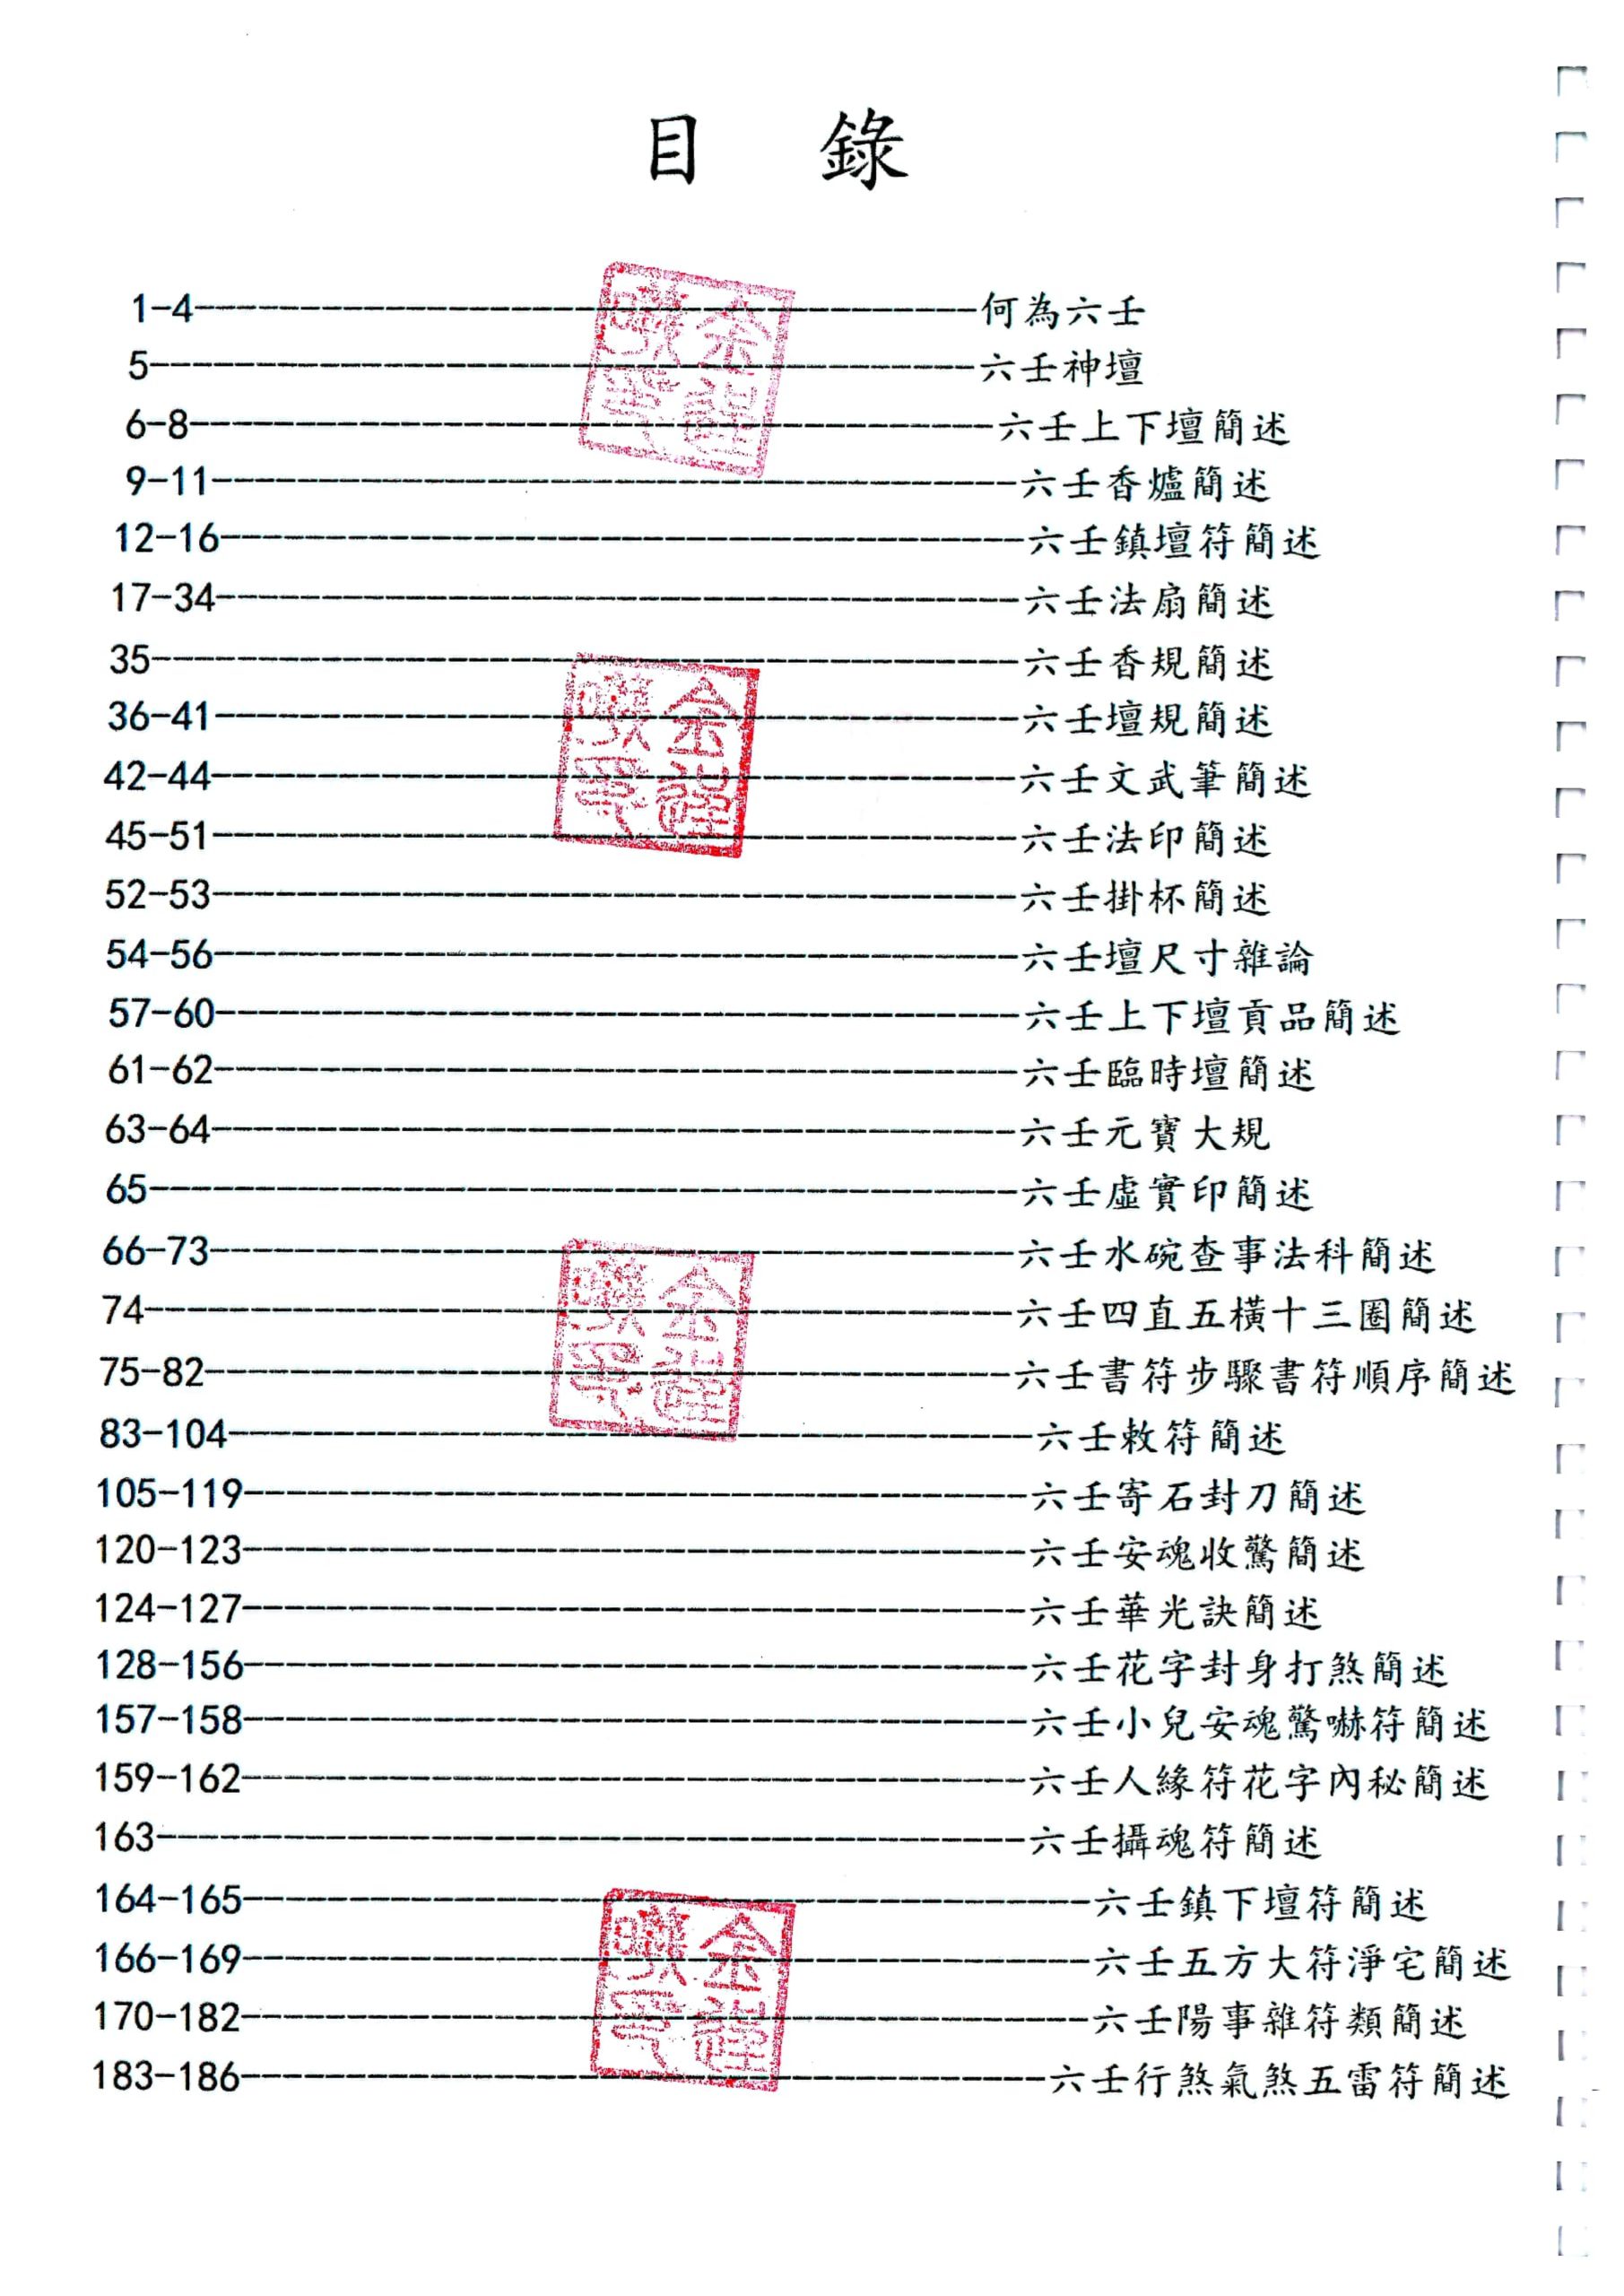 目 錄
1-4 何為六壬
5 六壬神壇
6-8 六壬上下壇簡述
9-11 六壬香爐簡述
12-16 六壬鎮壇符簡述
17-34 六壬法扇簡述
35 六壬香規簡述
36-41 六壬壇規簡述
42-44 六壬文武筆簡述
45-51 六壬法印簡述
52-53 六壬掛杯簡述
54-56 六壬壇尺寸雜論
57-60 六壬上下壇貢品簡述
61-62 六壬臨時壇簡述
63-64 六壬元寶大規
65 六壬虛實印簡述
66-73 六壬水碗查事法科簡述
74 六壬四直五橫十三圈簡述
75-82 六壬書符步驟書符順序簡述
83-104 六壬敕符簡述
105-119 六壬寄石封刀簡述
120-123 六壬安魂收驚簡述
124-127 六壬華光訣簡述
128-156 六壬花字封身打煞簡述
157-158 六壬小兒安魂驚嚇符簡述
159-162 六壬人緣符花字內秘簡述
163 六壬攝魂符簡述
164-165 六壬鎮下壇符簡述
166-169 六壬五方大符淨宅簡述
170-182 六壬陽事雜符類簡述
183-186 六壬行煞氣煞五雷符簡述